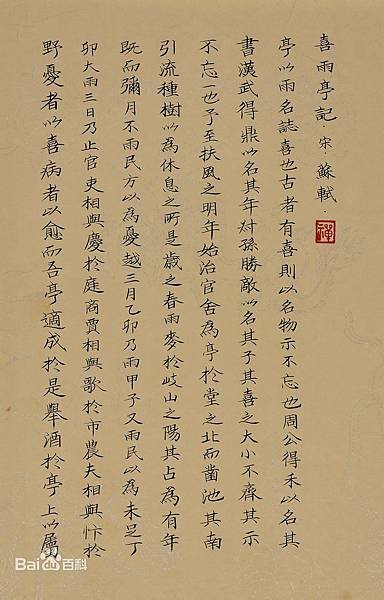 喜雨亭記·宋·蘇軾·
禪
亭以雨名誌喜也古者有喜則以名物示不忘也周公得禾以名其
書漢武得鼎以名其年叔孫勝敵以名其子其喜之大小不齊其示
不忘一也予至扶風之明年始治官舍為亭於堂之北而鑿池其南
引流種樹以為休息之所是歲之春雨麥於岐山之陽其占為有年
既而彌月不雨民方以為憂越三月乙卯乃雨甲子又雨民以為未足丁
卯大雨三日乃止官吏相與慶於庭商賈相與歌於市農夫相與忭於
野憂者以喜病者以愈而吾亭適成於是舉酒於亭上以屬
Bai百科